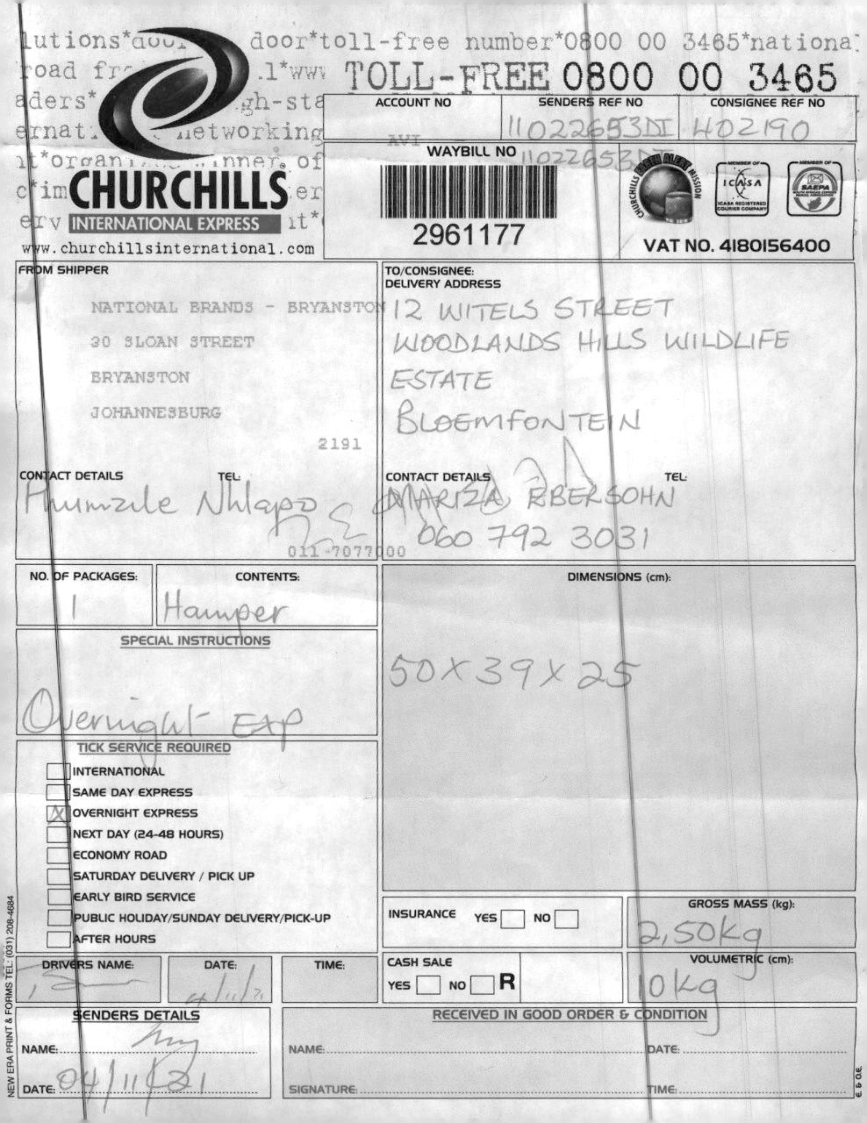 lutions*door door*toll-free number*0800 00 3465*nationa
road .1*www TOLL-FREE 0800 00 3465
aders* gh-sta
ernat networking
of
c*im er
erv it*
CHURCHILLS
INTERNATIONAL EXPRESS
www.churchillsinternational.com
ACCOUNT NO
SENDERS REF NO
11022653DI
CONSIGNEE REF NO
402190
AVI
WAYBILL NO 11022653DI
2961177
CHURCHILLS MISSION
MEMBER OF
ICASA
ICASA REGISTERED
COURIER COMPANY
MEMBER OF
SAEPA
VAT NO. 4180156400
FROM SHIPPER
NATIONAL BRANDS - BRYANSTON
30 SLOAN STREET
BRYANSTON
JOHANNESBURG
2191
CONTACT DETAILS TEL:
Nhlapo
011-7077000
TO/CONSIGNEE:
DELIVERY ADDRESS
12 WITELS STREET
WOODLANDS HILLS WILDLIFE
ESTATE
BLOEMFONTEIN
CONTACT DETAILS TEL:
MARIZA EBERSOHN
060 792 3031
NO. OF PACKAGES:
1
CONTENTS:
Hamper
DIMENSIONS (cm):
50 X 39 X 25
SPECIAL INSTRUCTIONS
Overnight EXP
TICK SERVICE REQUIRED
INTERNATIONAL
SAME DAY EXPRESS
X OVERNIGHT EXPRESS
NEXT DAY (24-48 HOURS)
ECONOMY ROAD
SATURDAY DELIVERY / PICK UP
EARLY BIRD SERVICE
PUBLIC HOLIDAY/SUNDAY DELIVERY/PICK-UP
AFTER HOURS
INSURANCE YES NO
GROSS MASS (kg):
2,50kg
DRIVERS NAME:
DATE:
TIME:
CASH SALE
YES NO R
VOLUMETRIC (cm):
10kg
SENDERS DETAILS
NAME:
DATE: 04/11/21
RECEIVED IN GOOD ORDER & CONDITION
NAME: DATE:
SIGNATURE: TIME:
NEW ERA PRINT & FORMS TEL: (031) 208-4684
E. & O.E.